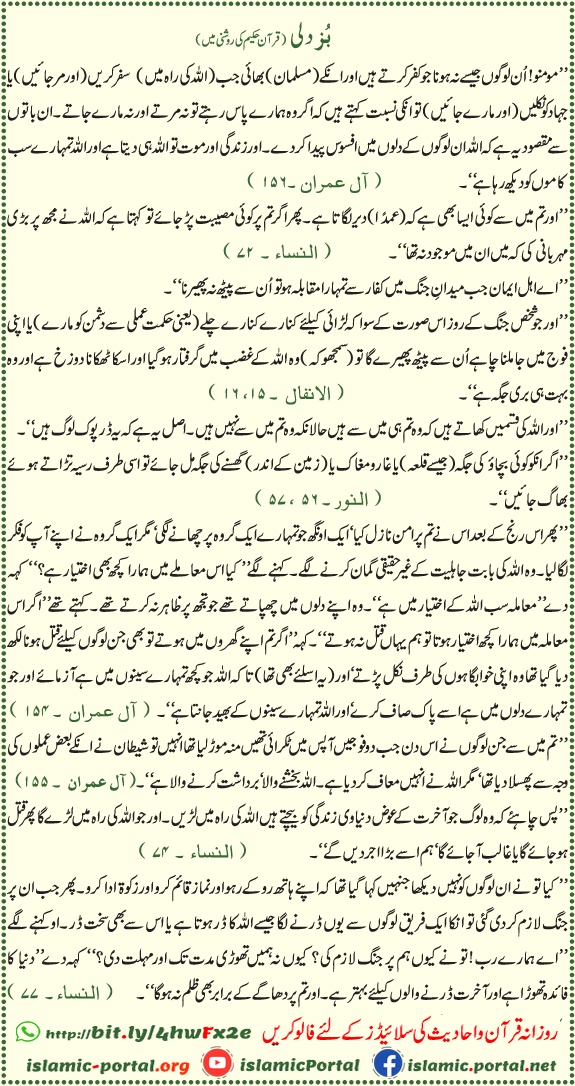 بُزدلی (قرآن حکیم کی روشنی میں)
’’مومنو! اُن لوگوں جیسے نہ ہونا جو کفر کرتے ہیں اور انکے (مسلمان) بھائی جب (اللہ کی راہ میں) سفر کریں (اور مر جائیں) یا
جہاد کو نکلیں (اور مارے جائیں) تو انکی نسبت کہتے ہیں کہ اگر وہ ہمارے پاس رہتے تو نہ مرتے اور نہ مارے جاتے۔ ان باتوں
سے مقصود یہ ہے کہ اللہ ان لوگوں کے دلوں میں افسوس پیدا کر دے۔ اور زندگی اور موت تو اللہ ہی دیتا ہے اور اللہ تمہارے سب
کاموں کو دیکھ رہا ہے‘‘۔ ( آل عمران ۔۱۵۶ )
’’اور تم میں سے کوئی ایسا بھی ہے کہ (عمدًا) دیر لگاتا ہے۔ پھر اگر تم پر کوئی مصیبت پڑ جائے تو کہتا ہے کہ اللہ نے مجھ پر بڑی
مہربانی کی کہ میں ان میں موجود نہ تھا‘‘۔ ( النساء ۔ ۷۲ )
’’اے اہل ایمان جب میدانِ جنگ میں کفار سے تمہارا مقابلہ ہو تو اُن سے پیٹھ نہ پھیرنا‘‘۔
’’اور جو شخص جنگ کے روز اس صورت کے سوا کہ لڑائی کیلئے کنارے کنارے چلے (یعنی حکمت عملی سے دشمن کو مارے) یا اپنی
فوج میں جا ملنا چاہے اُن سے پیٹھ پھیرے گا تو (سمجھو کہ) وہ اللہ کے غضب میں گرفتار ہو گیا اور اسکا ٹھکانا دوزخ ہے اور وہ
بہت ہی بری جگہ ہے‘‘۔ ( الانفال ۔ ۱۶،۱۵ )
’’اور اللہ کی قسمیں کھاتے ہیں کہ وہ تم ہی میں سے ہیں حالانکہ وہ تم میں سے نہیں ہیں۔ اصل یہ ہے کہ یہ ڈرپوک لوگ ہیں‘‘۔
’’اگر انکو کوئی بچاؤ کی جگہ (جیسے قلعہ) یا غار و مغاک یا (زمین کے اندر) گھسنے کی جگہ مل جائے تو اسی طرف رسیہ تڑاتے ہوئے
بھاگ جائیں‘‘۔ ( النور۔ ۵۶ ،۵۷ )
’’پھر اس رنج کے بعد اس نے تم پر امن نازل کیا‘ ایک اونگھ جو تمہارے ایک گروہ پر چھانے لگی‘ مگر ایک گروہ نے اپنے آپ کو فکر
لگا لیا۔ وہ اللہ کی بابت جاہلیت کے غیر حقیقی گمان کرنے لگے۔ کہنے لگے’’ کیا اس معاملے میں ہمارا کچھ بھی اختیار ہے؟‘‘ کہہ
دے’’معاملہ سب اللہ کے اختیار میں ہے‘‘۔ وہ اپنے دلوں میں چھپاتے تھے جو تجھ پر ظاہر نہ کرتے تھے۔ کہتے تھے’’اگر اس
معاملہ میں ہمارا کچھ اختیار ہوتا تو ہم یہاں قتل نہ ہوتے‘‘۔ کہہ’’اگر تم اپنے گھروں میں ہوتے تو بھی جن لوگوں کیلئے قتل ہونا لکھ
دیا گیا تھا وہ اپنی خوابگاہوں کی طرف نکل پڑتے‘ اور (یہ اسلئے بھی تھا) تا کہ اللہ جو کچھ تمہارے سینوں میں ہے آزمائے اور جو
تمہارے دلوں میں ہے اسے پاک صاف کرے‘ اور اللہ تمہارے سینوں کے بھید جانتا ہے‘‘۔ ( آل عمران ۔ ۱۵۴ )
’’تم میں سے جن لوگوں نے اس دن جب دو فوجیں آپس میں ٹکرائی تھیں منہ موڑ لیا تھا انہیں تو شیطان نے انکے بعض عملوں کی
وجہ سے پھسلا دیا تھا‘ مگر اللہ نے انہیں معاف کر دیا ہے۔ اللہ بخشنے والا‘ برداشت کرنے والا ہے‘‘۔ (آل عمران ۔ ۱۵۵)
’’پس چاہئے کہ وہ لوگ جو آخرت کے عوض دنیاوی زندگی کو بیچتے ہیں اللہ کی راہ میں لڑیں۔ اور جو اللہ کی راہ میں لڑے گا پھر قتل
ہو جائے گا یا غالب آ جائے گا‘ ہم اسے بڑا اجر دیں گے‘‘۔ ( النساء ۔ ۷۴ )
’’کیا تو نے ان لوگوں کو نہیں دیکھا جنہیں کہا گیا تھا کہ اپنے ہاتھ روکے رہو اور نماز قائم کرو اور زکوۃ ادا کرو۔ پھر جب ان پر
جنگ لازم کر دی گئی تو انکا ایک فریق لوگوں سے یوں ڈرنے لگا جیسے اللہ کا ڈر ہوتا ہے یا اس سے بھی سخت ڈر۔ او کہنے لگے
’’اے ہمارے رب! تو نے کیوں ہم پر جنگ لازم کی؟ کیوں نہ ہمیں تھوڑی مدت تک اور مہلت دی؟‘‘ کہہ دے’’دنیا کا
فائدہ تھوڑا ہے اور آخرت ڈرنے والوں کیلئے بہتر ہے۔ اور تم پر دھاگے کے برابر بھی ظلم نہ ہوگا‘‘۔ ( النساء ۔ ۷۷ )
روزانہ قرآن و احادیث کی سلائیڈز کے لئے فالو کریں http://bit.ly/4hwFx2e
islamic-portal.org islamicPortal islamic.portal.net